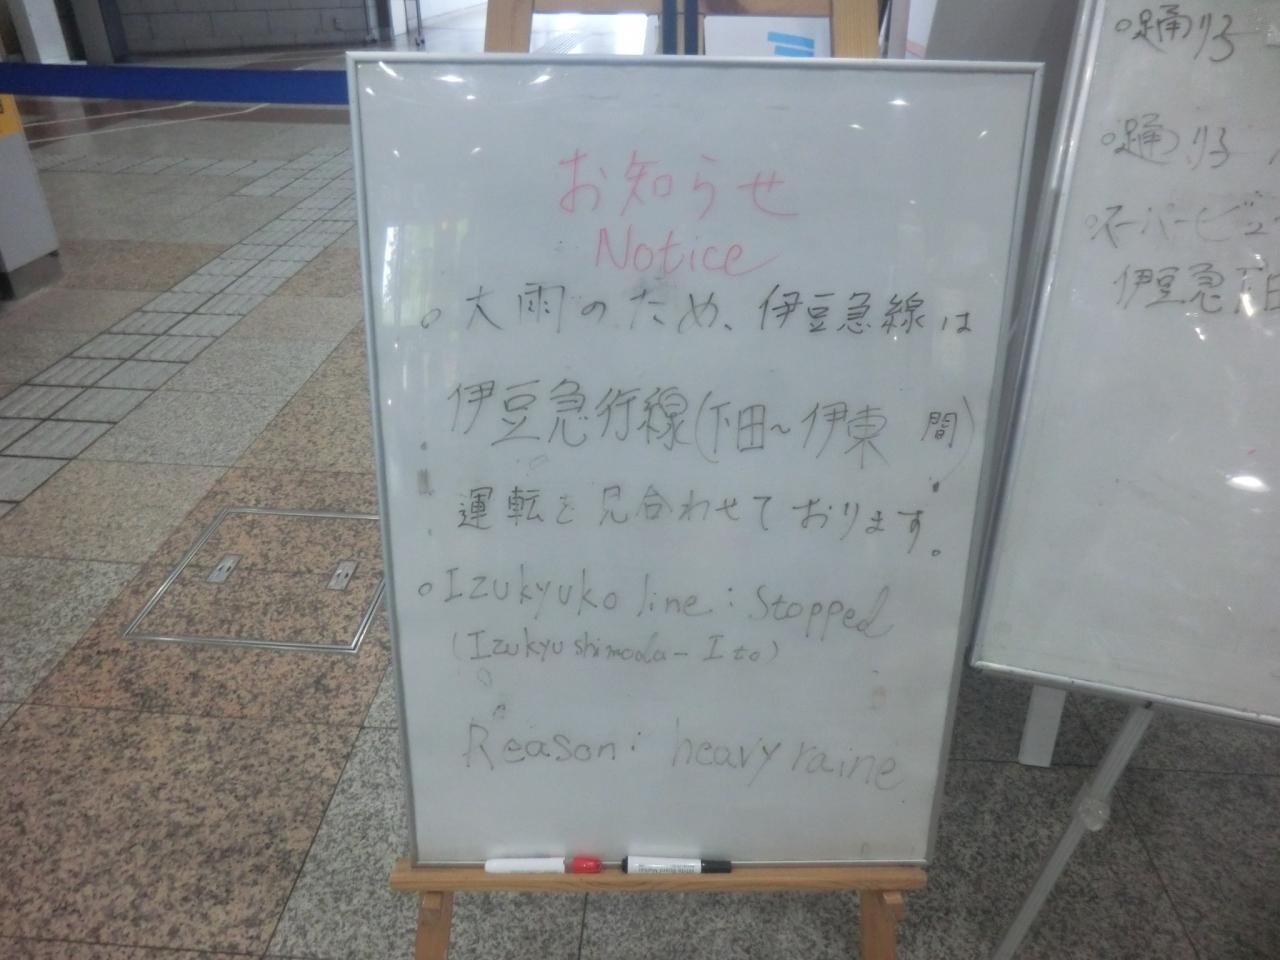 お知らせ
Notice
○大雨のため、伊豆急線は
伊豆急行線(下田~伊東 間)
運転を見合わせております。
○Izukyuko line: Stopped
(Izukyu shimoda-Ito)
Reason: heavy raine
○踊り子
○踊り子
○スーパービュー
伊豆急下田